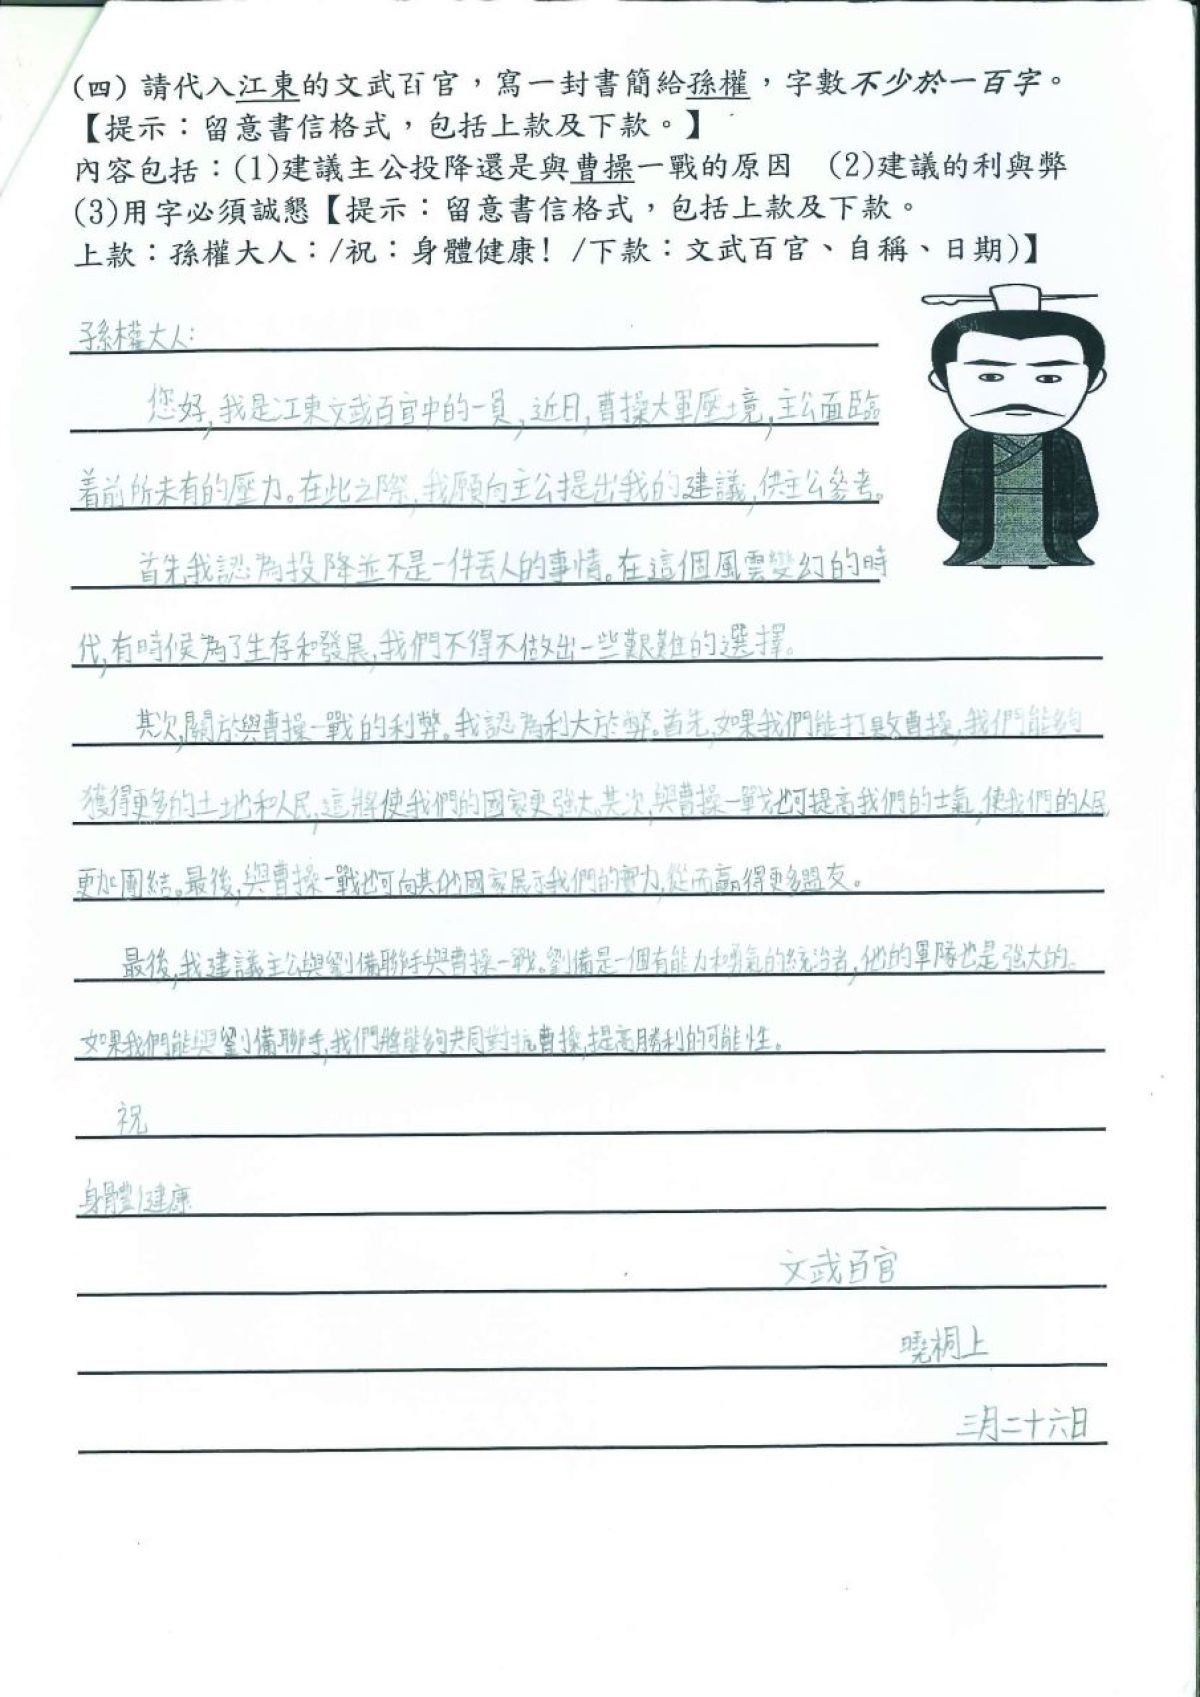 (四) 請代入江東的文武百官，寫一封書簡給孫權，字數不少於一百字。
【提示：留意書信格式，包括上款及下款。】
內容包括：(1)建議主公投降還是與曹操一戰的原因　(2)建議的利與弊
(3)用字必須誠懇【提示：留意書信格式，包括上款及下款。
上款：孫權大人：/祝：身體健康！/下款：文武百官、自稱、日期)】
孫權大人：
您好，我是江東文武百官中的一員，近日，曹操大軍壓境，主公面臨
着前所未有的壓力。在此之際，我願向主公提出我的建議，供主公參考。
首先，我認為投降並不是一件丟人的事情。在這個風雲變幻的時
代，有時候為了生存和發展，我們不得不做出一些艱難的選擇。
其次，關於與曹操一戰的利弊。我認為利大於弊。首先，如果我們能打敗曹操，我們能夠
獲得更多的土地和人民，這將使我們的國家更強大。其次，與曹操一戰也可提高我們的士氣，使我們的人民
更加團結。最後，與曹操一戰也可向其他國家展示我們的實力，從而贏得更多盟友。
最後，我建議主公與劉備聯手與曹操一戰。劉備是一個有能力和勇氣的統治者，他的軍隊也是強大的。
如果我們能與劉備聯手，我們將能夠共同對抗曹操，提高勝利的可能性。
祝
身體健康
文武百官
曉桐上
三月二十六日